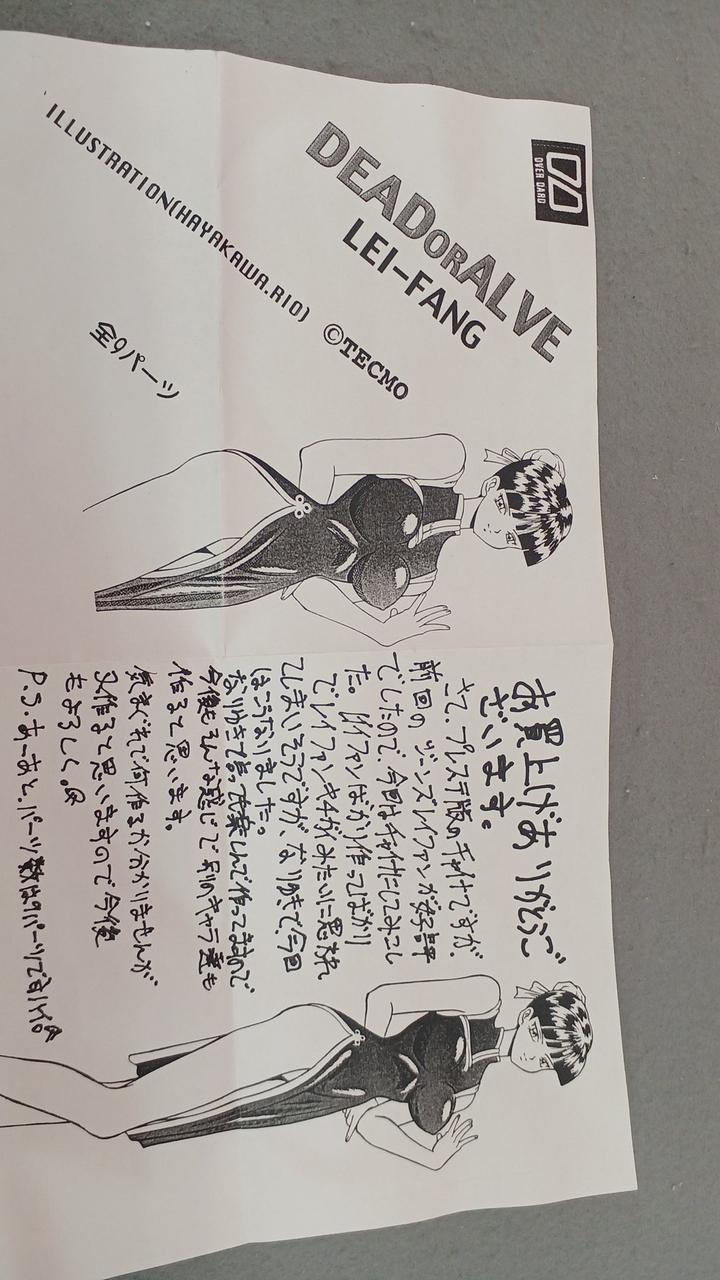 OVER DARD
DEADORALVE
LEI-FANG
ILLUSTRATION(HAYAKAWA.RIO)
©TECMO
全9パーツ
お買上げありがとうご
ざいます。
さて、プレステ版のチャイナですが、
前回の ジーンズレイファンが好評
でしたので、今回はチャイナにしてみまし
た。レイファンばかり作ってばかり
でレイファンキチガイみたいに思われ
てしまいそうですが、なりゆきで今回
はこうなりました。
なりゆきで 作ってますので
今後もそんな感じで 別のキャラ達も
作ると思います。
気まぐれで何作るか分かりませんが
又作ると思いますので今後
もよろしく。
P.S. あーあと、パーツ数は9パーツです